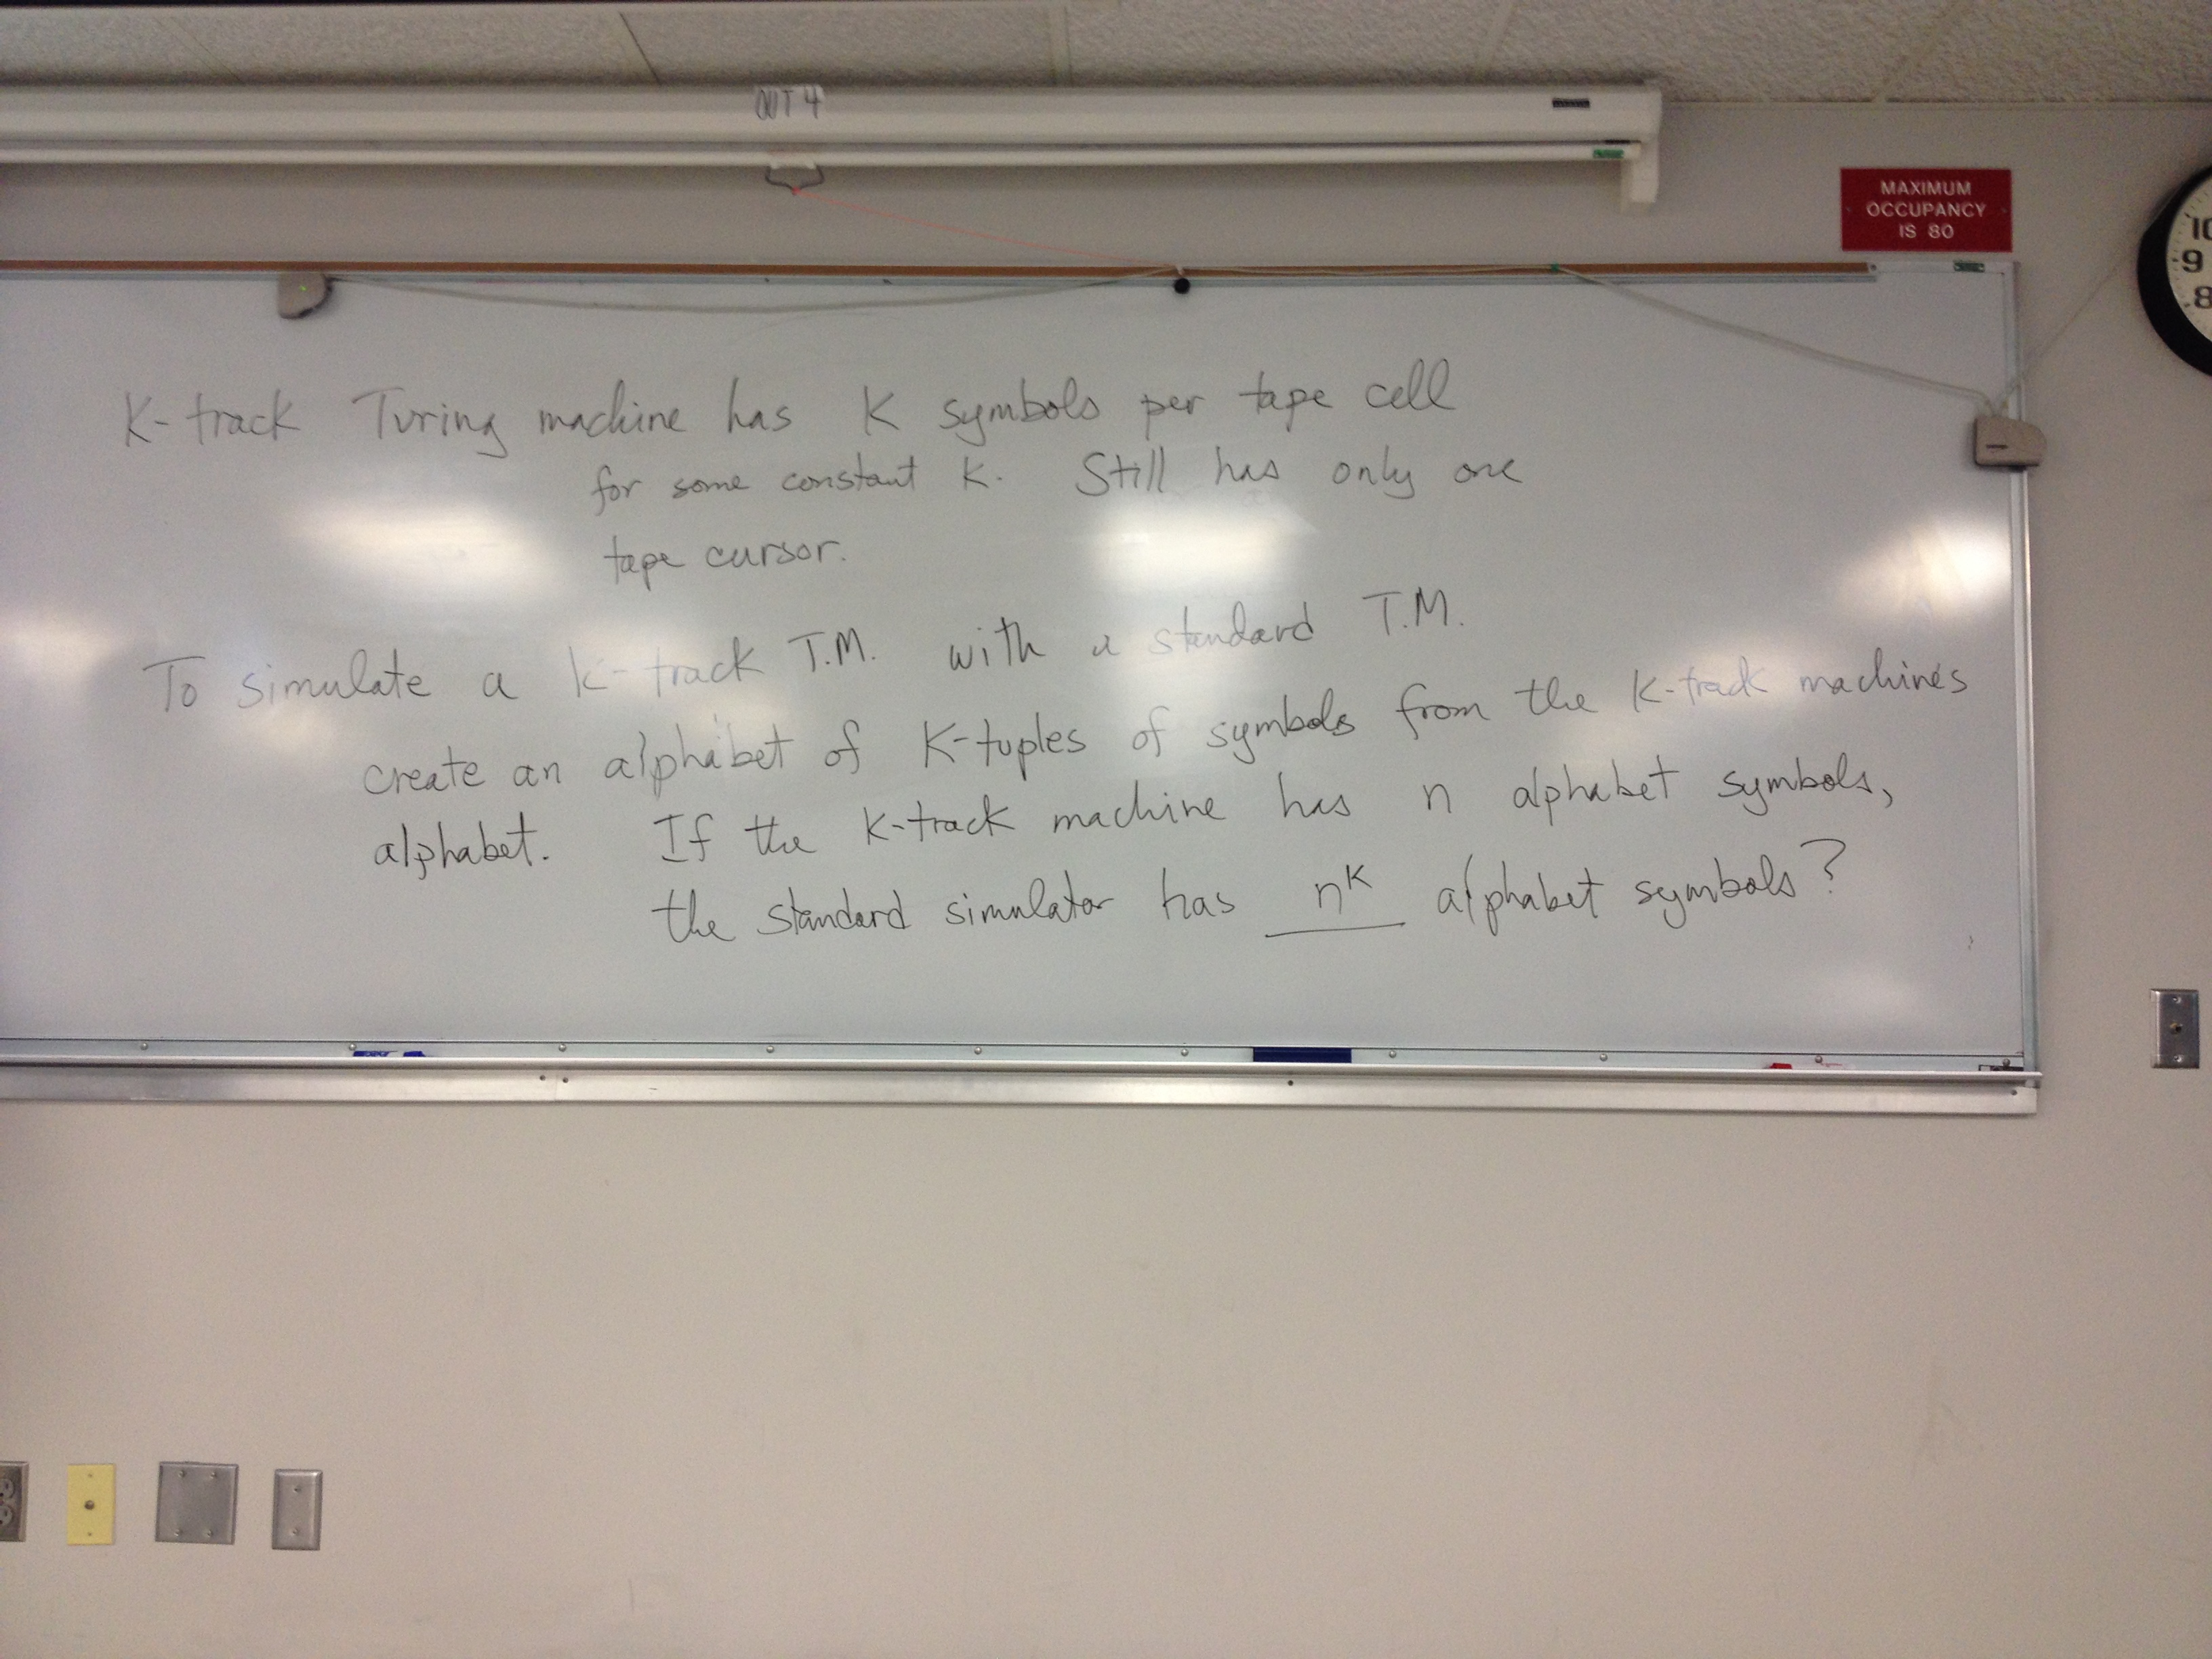 OUT 4
MAXIMUM
OCCUPANCY
IS 80
10
9
8
K-track Turing machine has K symbols per tape cell
for some constant K. Still has only one
tape cursor.
To simulate a K-track T.M. with a standard T.M.
create an alphabet of K-tuples of symbols from the K-track machine's
alphabet. If the K-track machine has n alphabet symbols,
the standard simulator has n^K alphabet symbols?